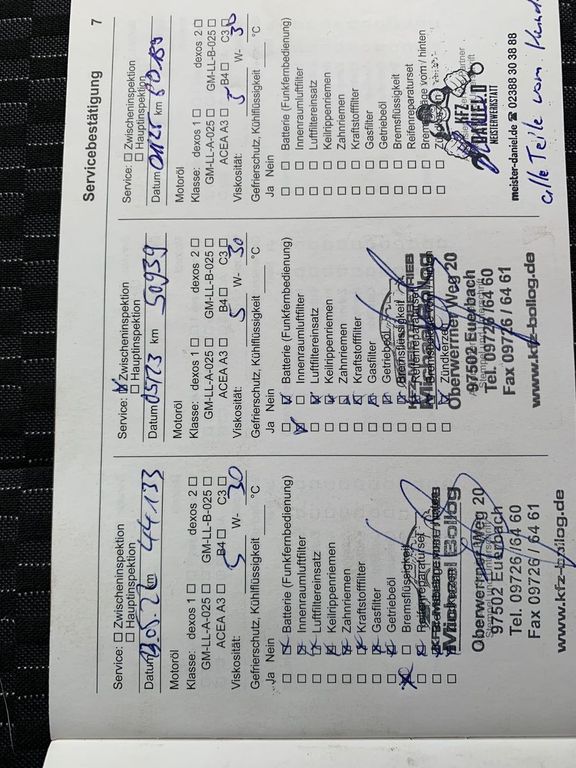 Servicebestätigung 7
Service: Zwischeninspektion
Hauptinspektion
Datum km 44.133
Motoröl
Klasse: dexos 1 dexos 2
GM-LL-A-025 GM-LL-B-025
ACEA A3 B4 C3
Viskosität: 5 W- 30
Gefrierschutz, Kühlflüssigkeit °C
Ja Nein
Batterie (Funkfernbedienung)
Innenraumluftfilter
Luftfiltereinsatz
Keilrippenriemen
Zahnriemen
Kraftstofffilter
Gasfilter
Getriebeöl
Bremsflüssigkeit
Reifenreparaturset
Michael Bollog
Oberwerrner Weg 20
97502 Euerbach
Tel. 09726 / 64 60
Fax 09726 / 64 61
www.kfz-bollog.de
Service: Zwischeninspektion
Hauptinspektion
Datum 05/23 km 50939
Motoröl
Klasse: dexos 1 dexos 2
GM-LL-A-025 GM-LL-B-025
ACEA A3 B4 C3
Viskosität: 5 W- 30
Gefrierschutz, Kühlflüssigkeit °C
Ja Nein
Batterie (Funkfernbedienung)
Innenraumluftfilter
Luftfiltereinsatz
Keilrippenriemen
Zahnriemen
Kraftstofffilter
Gasfilter
Getriebeöl
Bremsflüssigkeit
Reifenreparaturset
KFZ-MEISTERBETRIEB
Michael Bollog
Zündkerzen
Oberwerrner Weg 20
97502 Euerbach
Tel. 09726 / 64 60
Fax 09726 / 64 61
www.kfz-bollog.de
Service: Zwischeninspektion
Hauptinspektion
Datum km 60189
Motoröl
Klasse: dexos 1 dexos 2
GM-LL-A-025 GM-LL-B-025
ACEA A3 B4 C3
Viskosität: 5 W- 30
Gefrierschutz, Kühlflüssigkeit °C
Ja Nein
Batterie (Funkfernbedienung)
Innenraumluftfilter
Luftfiltereinsatz
Keilrippenriemen
Zahnriemen
Kraftstofffilter
Gasfilter
Getriebeöl
Bremsflüssigkeit
Reifenreparaturset
vorn / hinten
KFZ
DANIEL
MEISTERWERKSTATT
meister-daniel.de ☎ 02388 30 38 88
alle Teile vom